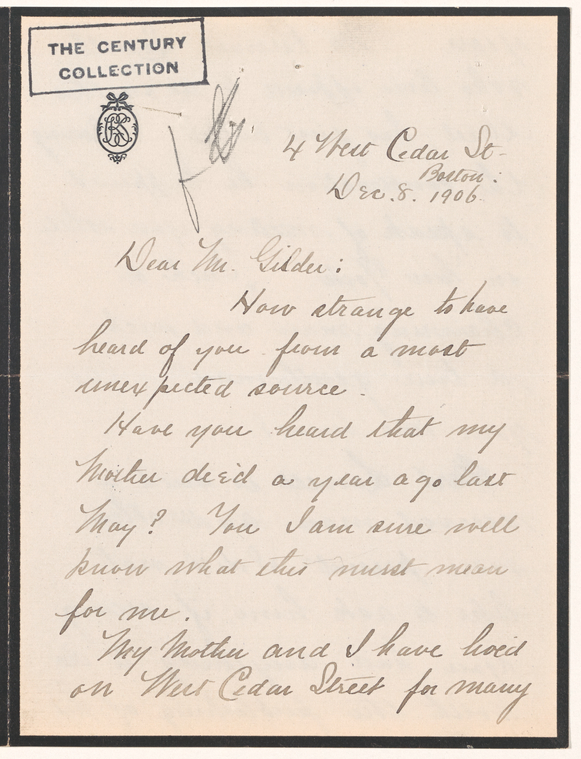 THE CENTURY
COLLECTION
4 West Cedar St-
Boston:
Dec. 8. 1906.
Dear Mr. Gilder:
How strange to have
heard of you from a most
unexpected source.
Have you heard that my
Mother died a year ago last
May? You I am sure well
know what this must mean
for me.
My Mother and I have lived
on West Cedar Street for many